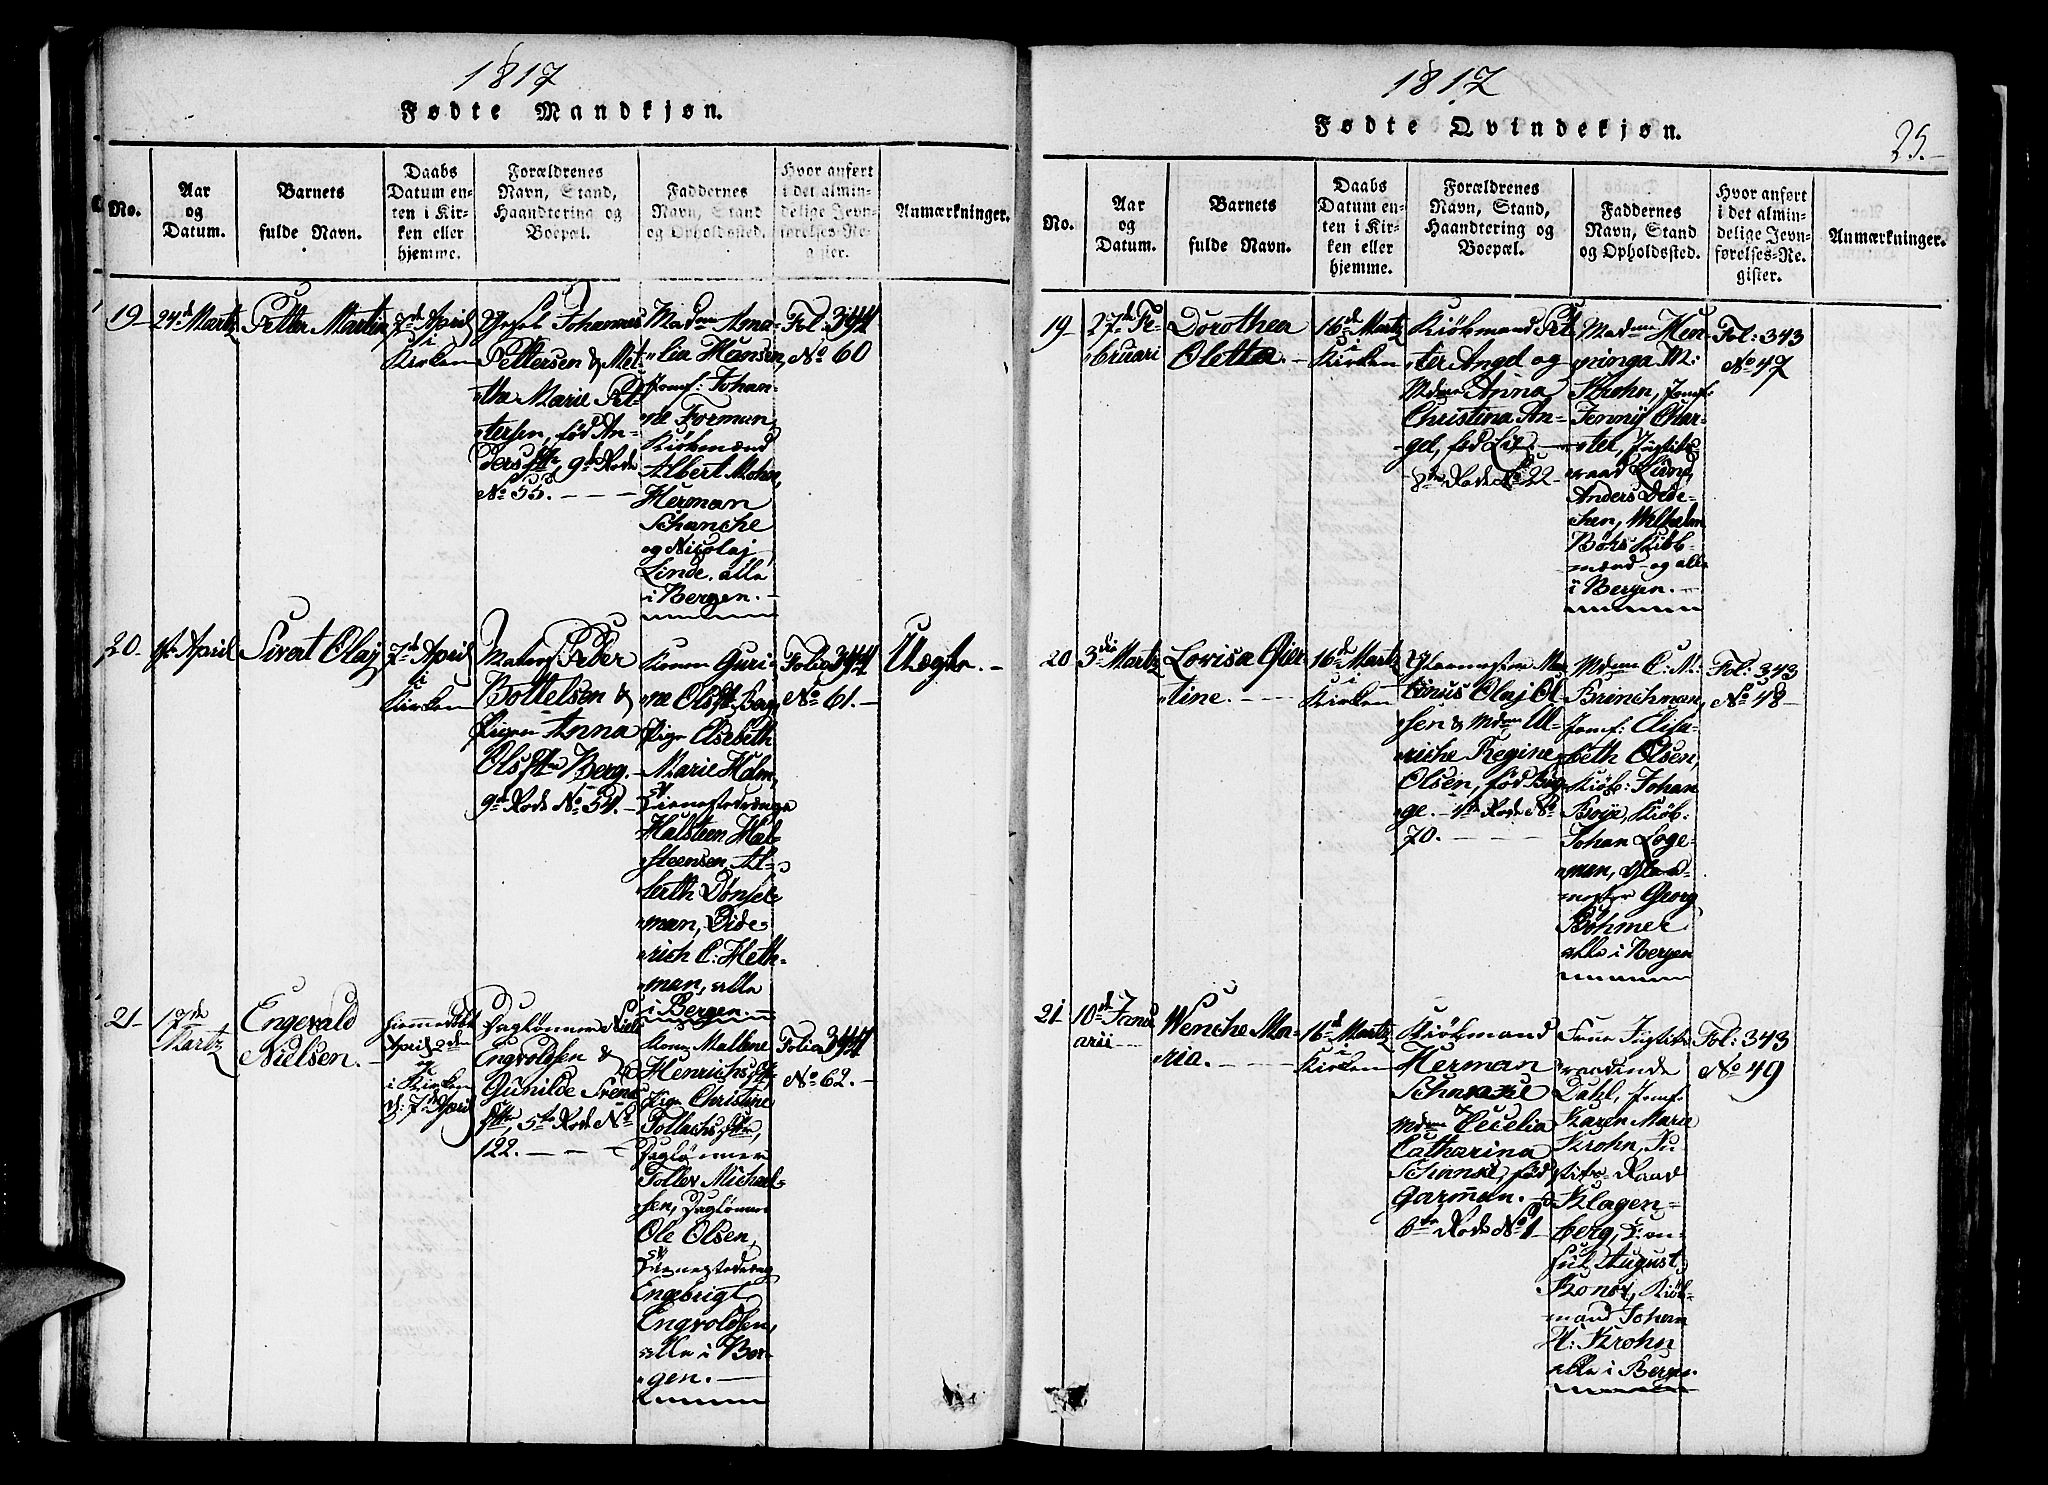 1817
Fødte Mandkjøn.
No.
Aar
og
Datum.
Barnets
fulde Navn.
Daabs
Datum en-
ten i Kir-
ken eller
hjemme.
Forældrenes
Navn, Stand,
Haandtering og
Boepæl.
Faddernes
Navn, Stand
og Opholdssted.
Hvor anført
i det almin-
delige Jevn-
førelses-Re-
gister.
Anmærkninger.
19-
24de Martz
Petter Martin
7de April
i
Kirken
Johannes
Pettersen & Met-
"the Marie Pet-
"tersen, fød An-
ders, 9de Rode
No 55.
Madme Ama-
"lia Hansen,
Jomf: Johan-
"ne Forman,
Kiøbmænd
Albert Mohn,
Herman
Schanche
og Nicolaj
Linde. alle
i Bergen.
Fol 344
No 60
20-
April
Sivert Olaj
7de April
i
Kirken
Matros Peder
Bottelsen &
Pigen Anna
Olsdtr Berg.
9de Rode No 54.
Konen Guri-
"ne Olsdtr Berg,
Pige Elsebeth
Marie Holm,
Tienestedrenge
Halsteen Hal-
"steensen, Al-
berth Dønsel-
"man, Dide-
"rich C: Heth-
"man, alle
i Bergen
Folio 344
No 61.
Uægte.
21-
17de
Martz
Engevald
Nielsen.
Hiemmedøbt
April 2den
og
i Kirken
d: 7de April
Daglønner Niels
Engvoldsen &
Gunilde Svens
5te Rode No
122.
Kone Mallene
Henrichsdtr
Pige Christine
Tollachsdtr,
Daglønner
Toller Michael-
sen, Dagløner
Ole Olsen,
Tienestedreng
Engebrigt
Engvoldsen,
alle i Ber-
"gen.
Folio 344
No 62.
1817
Fødte Qvindekjøn.
25.
No.
Aar
og
Datum.
Barnets
fulde Navn.
Daabs
Datum en-
ten i Kir-
ken eller
hjemme.
Forældrenes
Navn, Stand,
Haandtering og
Boepæl.
Faddernes
Navn, Stand
og Opholdssted.
Hvor anført
i det almin-
delige Jevn-
førelses-Re-
gister.
Anmærkninger.
19-
27de Fe-
"bruari
Dorothea
Oletta.
16de Martz
i
Kirken
Kiøbmand Pet-
"ter Angel og
Mdme Anna
Christina An-
gel, fød
8de Rode No 22
Madme Hen-
"ninga M:
Krohn, Jomf:
Jenny Char-
"ter, Justits-
raad
Anders Dede-
chen, Wilhelm
Børs Kiøb-
mænd og alle
i Bergen.
Fol: 343
No 47
20
3die Martz
Lovisa
"tine.
16de Martz
i
Kirken
Glarmester Mar-
tinus Olaj Ol-
sen & Mdme Ul-
"riche Regine
Olsen, fød Byg-
"ge. 1te Rode No
70.
Mdme C: M:
Brinchman,
Jomf: Elisa-
beth Olsen,
Kiøb: Johan
Boye, Kiøb:
Johan Loge-
"man, Glar-
mester Georg
Bøhmer
alle i Bergen
Fol: 343
No 48
21
10de Janu-
arii
Wenche Ma-
"ria.
16de Martz
i
Kirken
Kiøbmand
Herman
Schanche
&
Mdme Cecelia
Catharina
Schanke, fød
Garman.
6te Rode No 1
Frue Justits-
raadinde
Dahl, Jomf:
Karen Marie
Krohn, Ju-
stits-Raad
Klagen-
berg, Con-
sul August
Konow, Kiøb-
mand Johan
H: Krohn
alle i Bergen.
Fol: 343
No 49